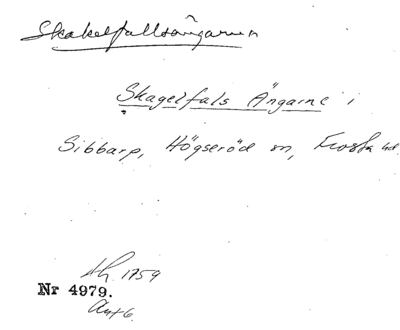 Skakelfallsängarna
Skagelfals Ängarne i
Sibbarp, Högseröd sn, Frosta hd.
1759
Nr 4979.